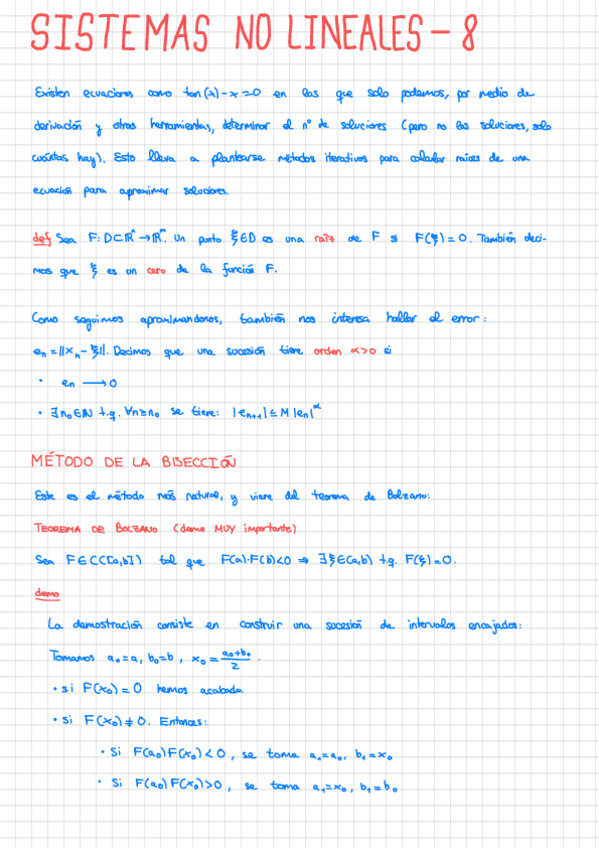 SISTEMAS NO LINEALES - 8
Existen ecuaciones como tan(x)-x=0 en las que solo podemos, por medio de
derivación y otras herramientas, determinar el nº de soluciones (pero no las soluciones, solo
cuántas hay). Esto lleva a plantearse métodos iterativos para calcular raíces de una
ecuación para aproximar soluciones.
def Sea F: D⊂ℝⁿ→ℝᵐ. Un punto ξ∈D es una raíz de F si F(ξ)=0. También deci-
mos que ξ es un cero de la función F.
Como seguimos aproximandonos, también nos interesa hallar el error:
eₙ=||xₙ-ξ||. Decimos que una sucesión tiene orden α>0 si
• eₙ ⟶0
• ∃n₀∈ℕ t.q. ∀n≥n₀ se tiene: |eₙ₊₁|≤M|eₙ|^α
MÉTODO DE LA BISECCIÓN
Este es el método más natural, y viene del teorema de Bolzano:
TEOREMA DE BOLZANO (demo MUY importante)
Sea F∈C([a,b]) tal que F(a)·F(b)<0 ⇒ ∃ξ∈(a,b) t.q. F(ξ)=0.
demo
La demostración consiste en construir una sucesión de intervalos encajados:
Tomamos a₀=a, b₀=b, x₀=(a₀+b₀)/2.
• si F(x₀)=0 hemos acabado
• si F(x₀)≠0. Entonces:
• Si F(a₀)F(x₀)<0, se toma a₁=a₀, b₁=x₀
• Si F(a₀)F(x₀)>0, se toma a₁=x₀, b₁=b₀